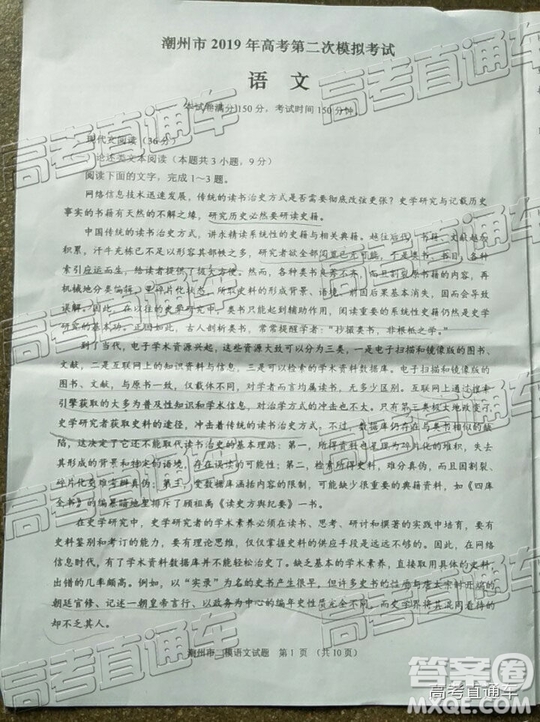 潮州市2019年高考第二次模拟考试
语文
本试卷满分150分，考试时间150分钟
现代文阅读（36分）
（一）论述类文本阅读（本题共3小题，9分）
阅读下面的文字，完成1～3题。
网络信息技术迅速发展，传统的读书治史方式是否需要彻底改弦更张？史学研究与记载历史
事实的书籍有天然的不解之缘，研究历史必然要研读史籍。
中国传统的读书治史方式，讲求精读系统性的史籍与相关典籍。越往后代，书籍、文献越积
积累，汗牛充栋已不足以形容其部帙之多，研究者欲全部阅览已无可能，于是类书、书目、各种
索引应运而生，给读者提供了极大方便。然而，各种类书良莠不齐，而且割裂原书籍的内容，再
机械地分要编辑，呈碎片化状态，所取史料的形成背景、语境、前因后果基本消失，因此存在导致
误解。因此，在以往的史学研究中，类书只能起到辅助作用，阅读重要的系统性史籍仍然是史学
研究的基本功。正因如此，古人创新类书，常常提醒学者：“抄撮类书，非根柢之学。”
到了当代，电子学术资源兴起，这些资源大致可以分为三类，一是电子扫描和镜像版的图书、
文献，二是互联网上的知识资料与信息，三是可以检索的史学资料数据库。电子扫描和镜像版的
图书、文献，与原书一致，仅载体不同，对学者而言均属读书，无多少区别。互联网上通过搜索
引擎获取的大多为普及性知识和学术信息，对治学方式的冲击也不大。只有第三类极大地改变了
史学研究者获取史料的途径，冲击着传统的读书治史方式。不过，数据库仍存在与类书相似的缺
陷，这决定了它还不能取代读书治史的基本理路：第一，所得资料也呈现为碎片化的堆积，失去
其形成的背景和特定的语境，存在误读的可能性；第二，检索所得史料，难分真伪，而且因割裂、
碎片化更难考辨真伪；第三，受数据库内容的限制，可能缺少很重要的典籍资料，如《四库
全书》的编纂暗地里排斥了顾祖禹《读史方舆纪要》一书。
在史学研究中，史学研究者的学术素养必须在读书、思考、研讨和撰著的实践中培育，要有
史料鉴别和考订的能力，要有理论思维，仅仅掌握史料的供应手段是远远不够的。因此，在网络
信息时代，有了学术资料数据库岂能轻松治史？缺乏基本的学术素养，直接取用具体的史料
出错的几率颇高。例如，以“实录”为名的史书产生很早，但许多史书的性质与唐太宗朝开端的
朝廷官修、记述一朝皇帝言行、以政务为中心的编年史性质完全不同，而史学界将其混同看待的
却不乏其人。
潮州市二模语文试题 第1页 （共10页）
高考直通车
答案圈
MXQE.COM
高考直通车